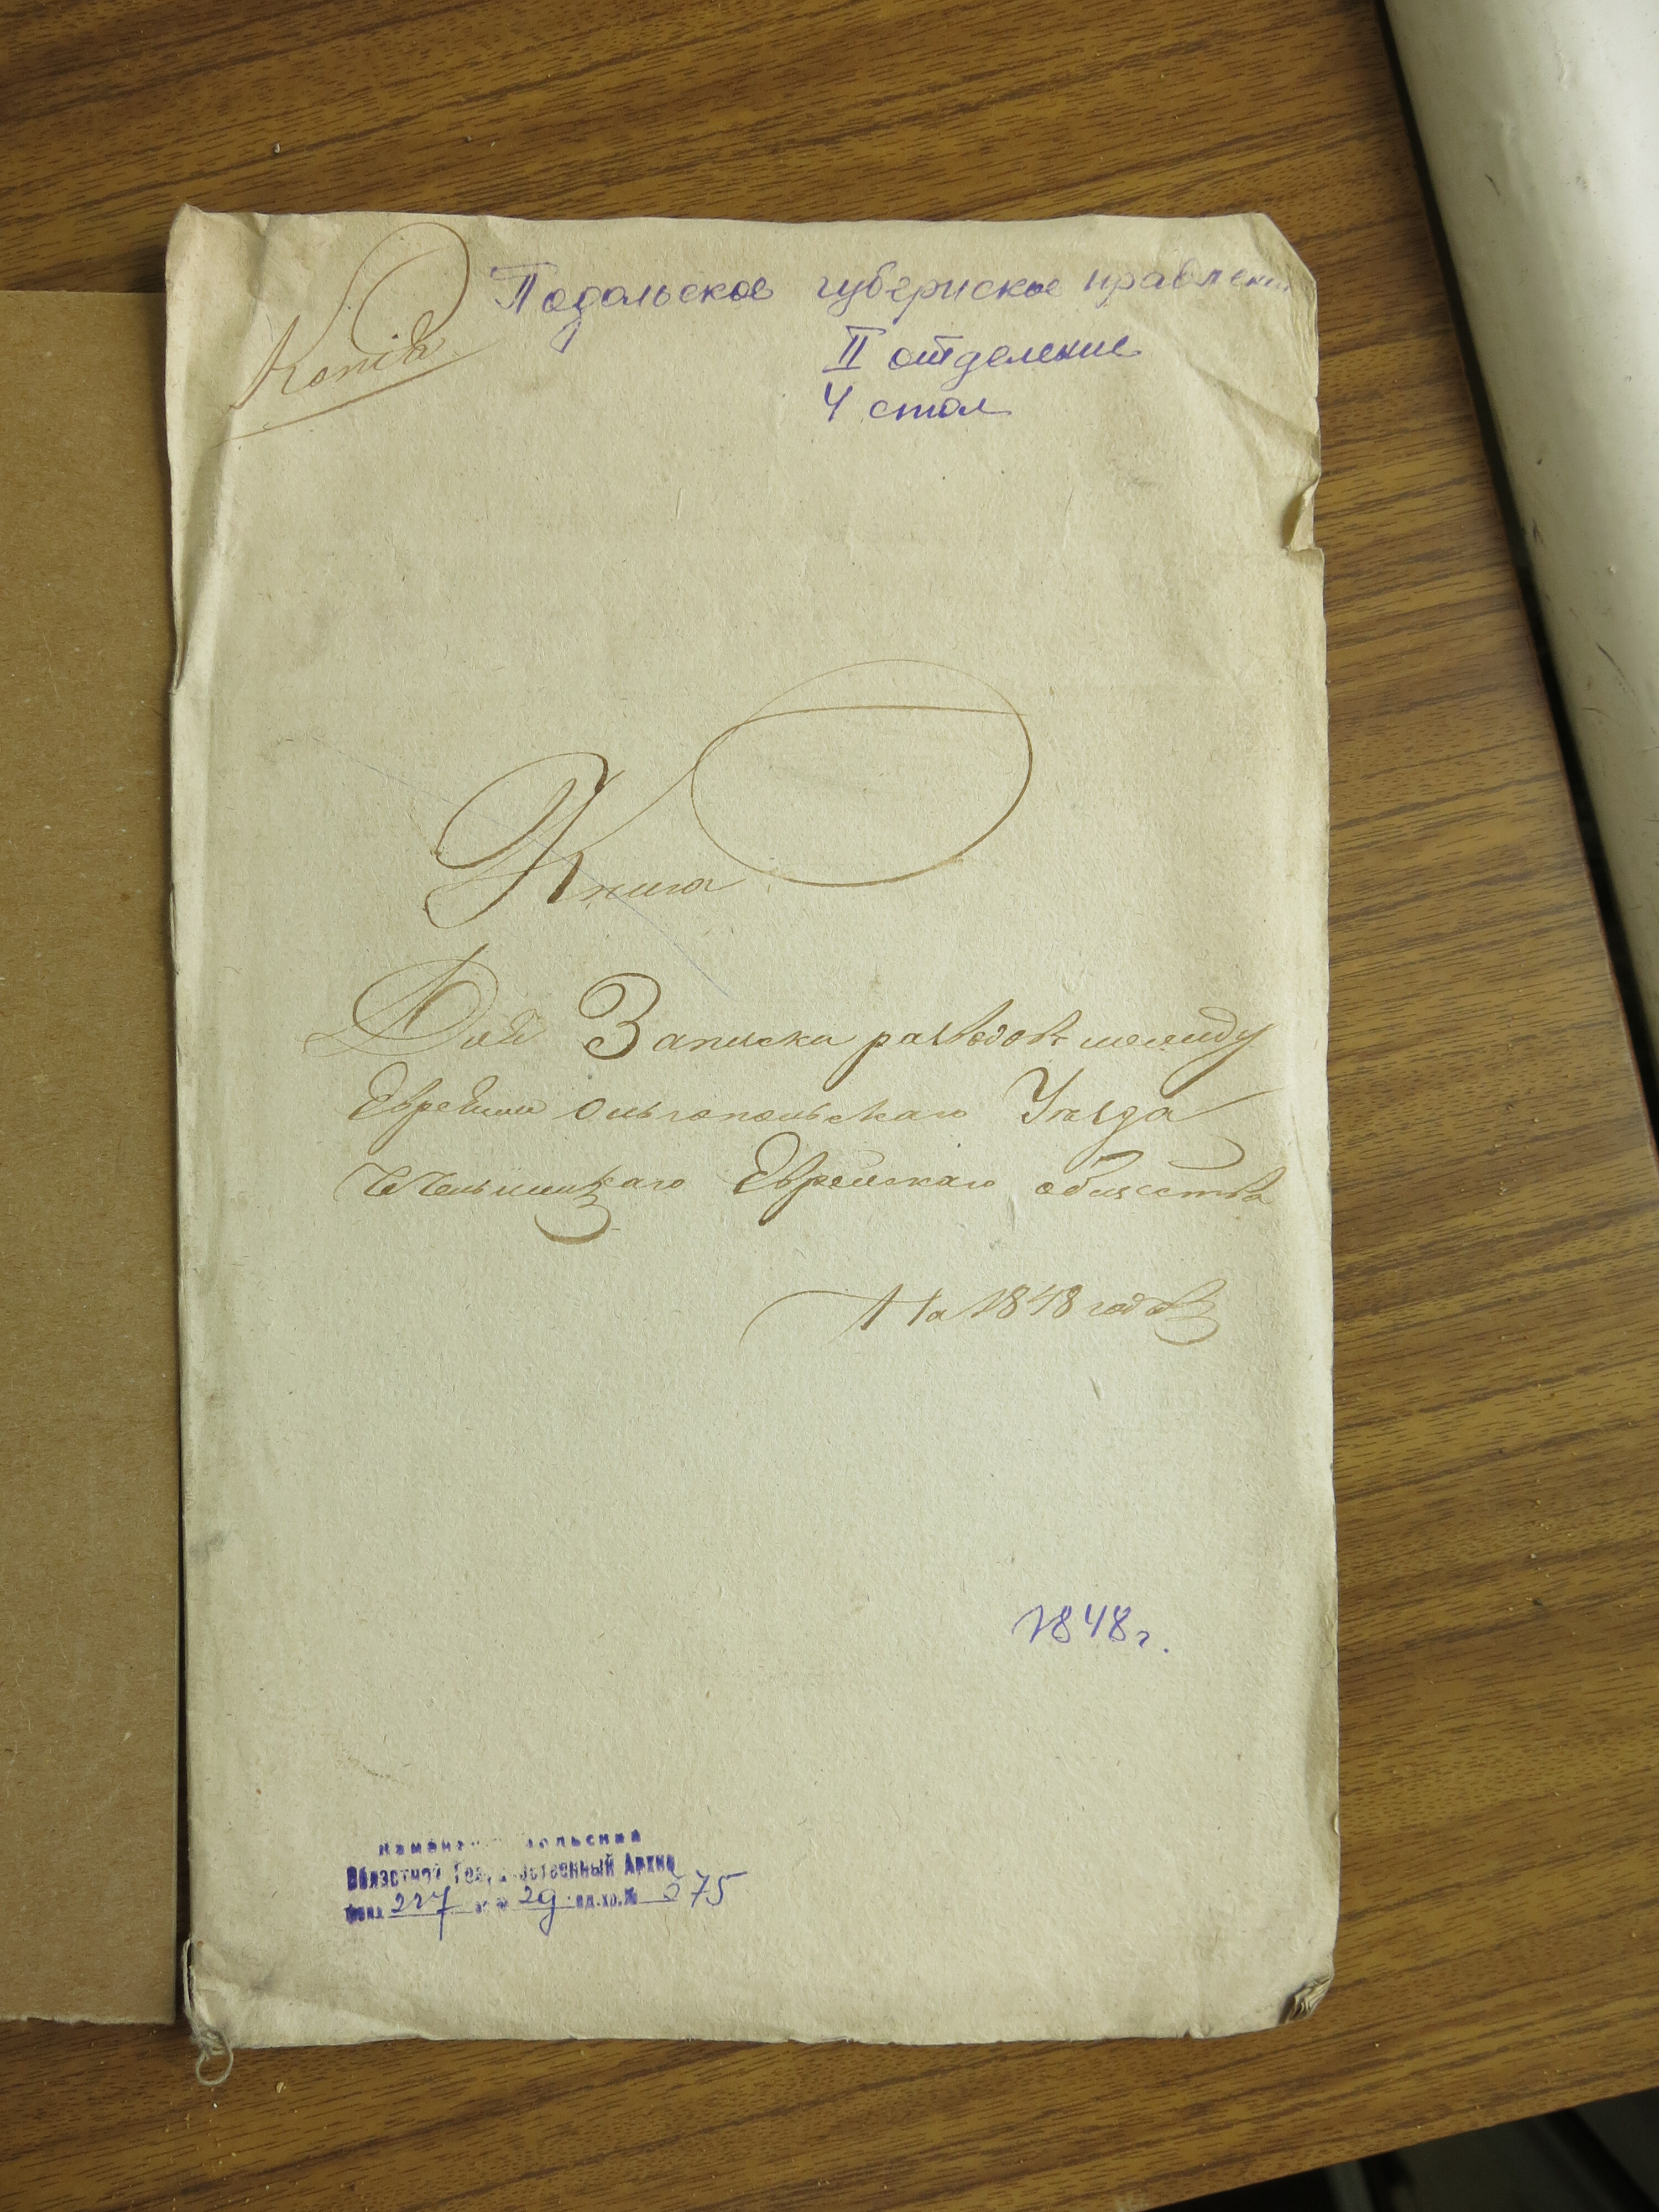 Копія
Подольское губернское правлени
II отделение
4 стол
Книга
Для Записки разводовъ между
Евреями Ольгопольскаго Уезда
Еврейскаго общества
На 1848 годъ
1848 г.
Областной Государственный Архив
фонд 227 29 ед.хр.№ 275